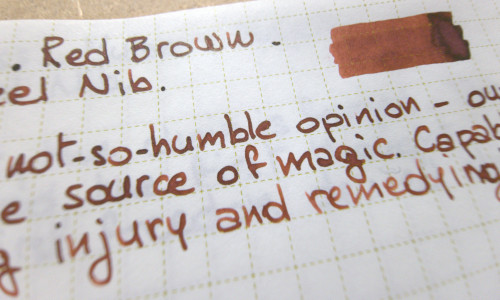 . Red Brown .
Nib.
not-so-humble opinion -
source of magic.
injury and remedying